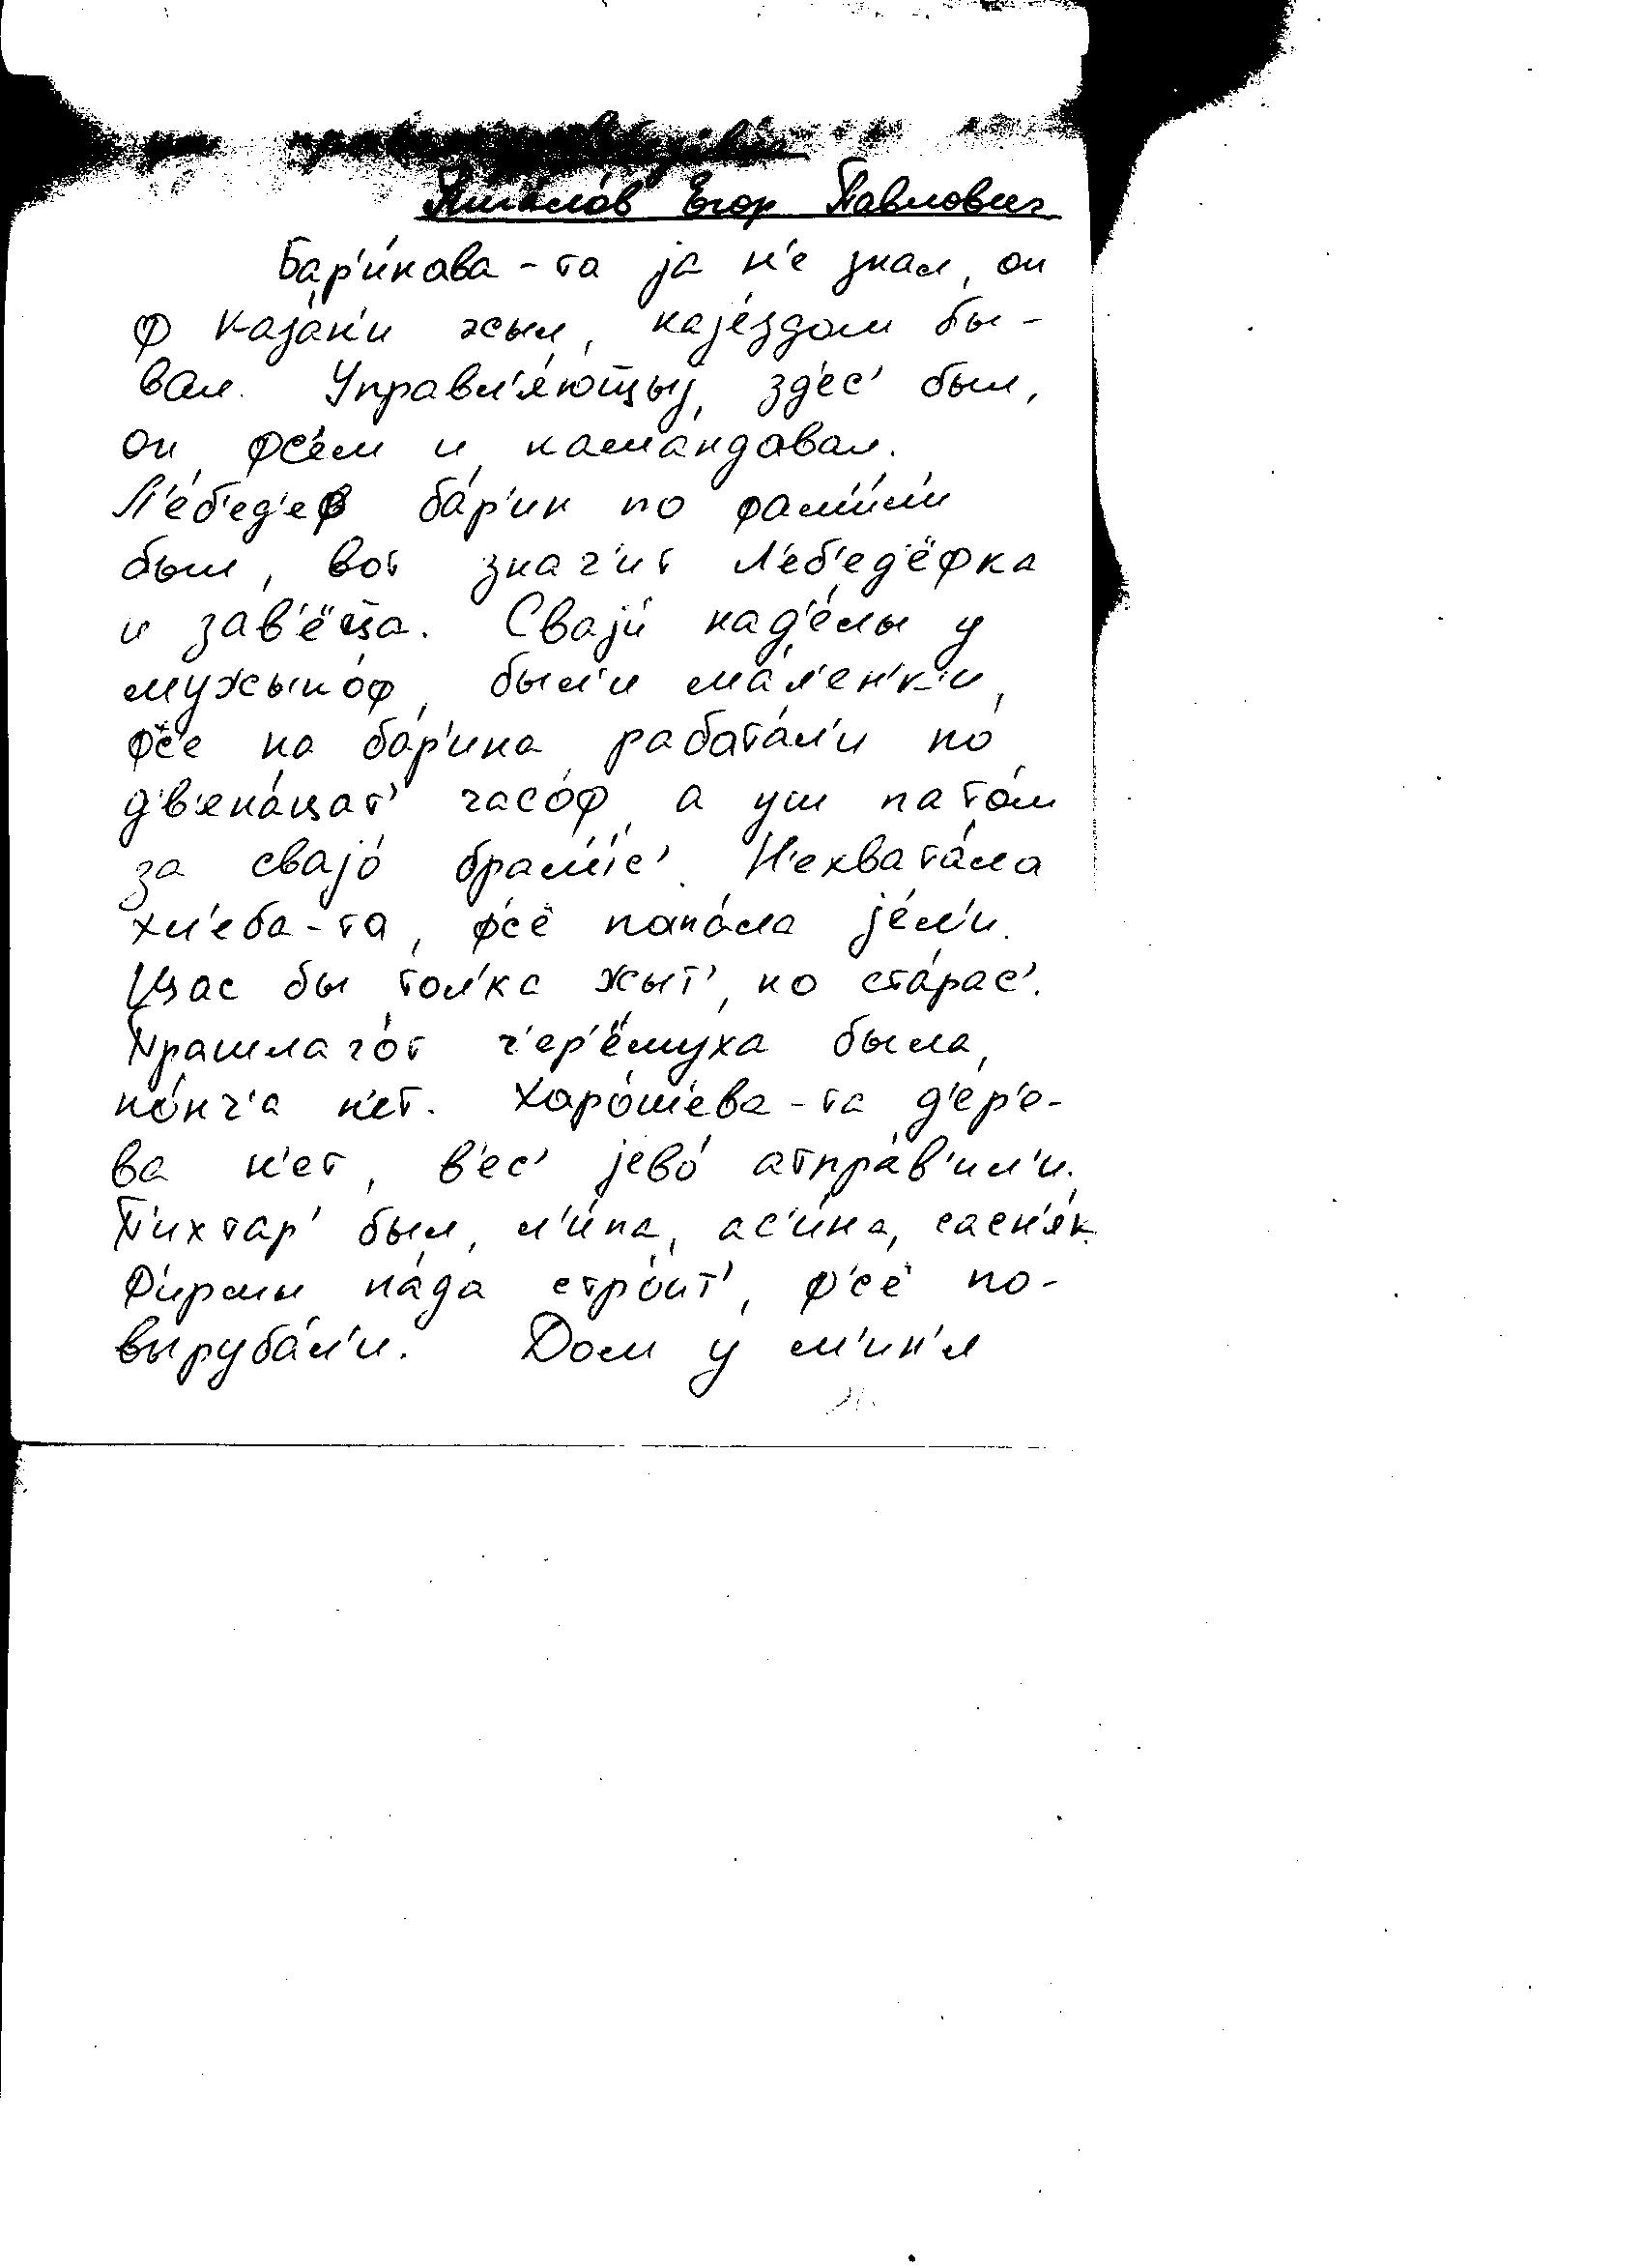 Егор Павлович
Бар'и́нова-та jа н'е знал, он
ф Каза́н'и жыл, наје́здом бы-
вал. Управл'я́ющыj, зд'ес' был,
он фс'ем и кама́ндовал.
Л'е́б'ед'еф ба́р'ин по фам'и́л'и
был, вот знач'ит Л'еб'ед'ёфка
и зав'ёца. Сваjи́ над'е́лы у
мужыко́ф, был'и ма́л'ен'к'и,
фс'е на ба́р'ина рабо́тал'и по
д'в'ена́цат' часо́ф, а уш пато́м
за сваjо́ брал'и́с'. Н'ехвата́ла
хл'еба-та, фс'ё папа́ла jе́л'и.
Щас бы тол'ка жыт', но ста́рас'.
Прашлаго́т ч'ер'ёмуха была,
но́нч'а н'ет. Харо́шева-та д'ер'е-
ва н'ет, в'ес' jево́ атпра́в'ил'и.
П'ихтар' был, л'и́па, ас'и́на, сасн'я́к.
Ф'ирмы на́да стро́ит', фс'ё по-
выруба́л'и. Дом у м'ин'я